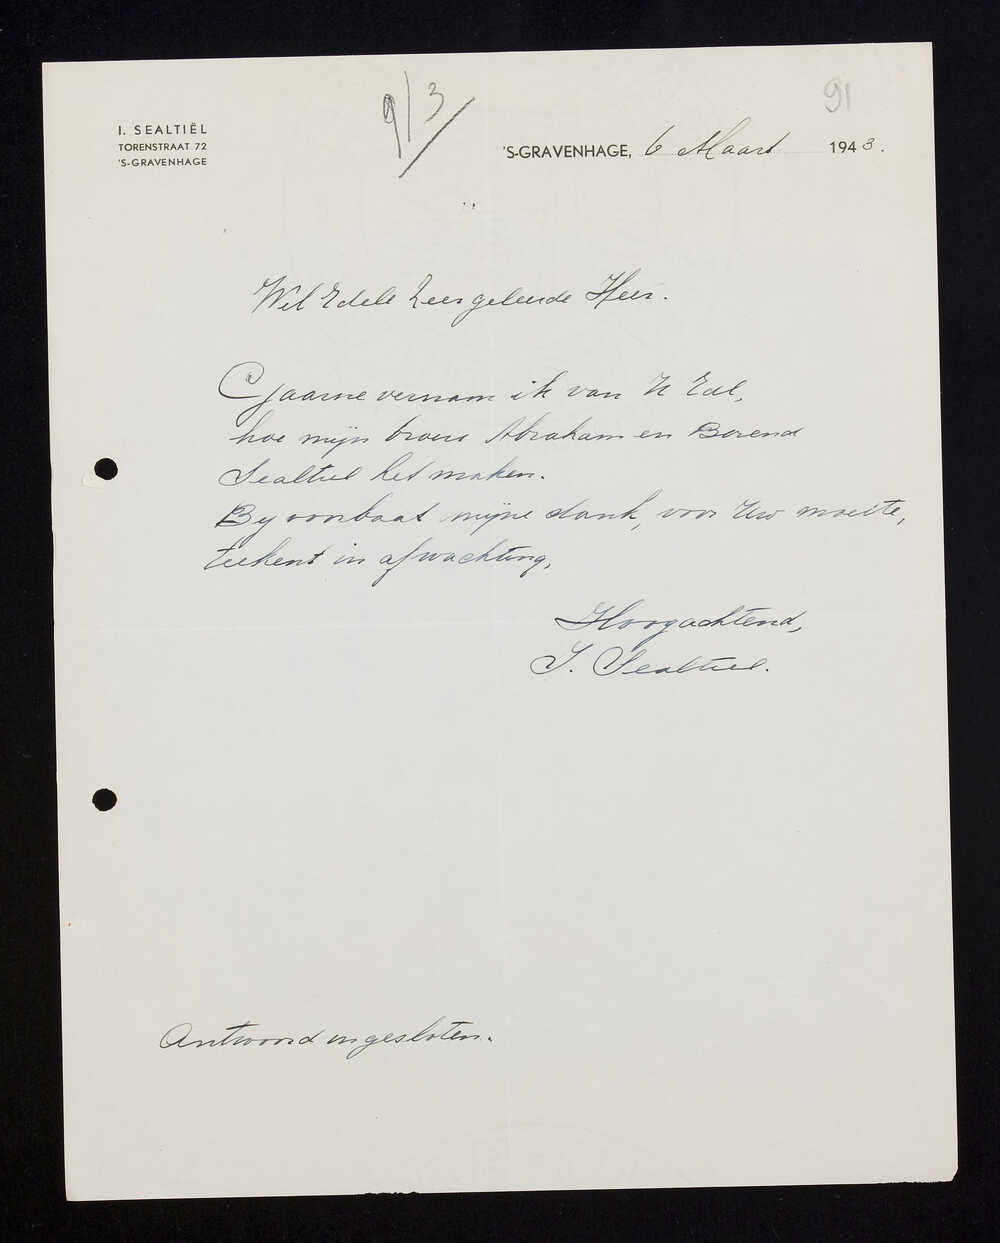 9/3
91
I. SEALTIËL
TORENSTRAAT 72
'S-GRAVENHAGE
'S-GRAVENHAGE, 6 Maart 1943.
Wel Edele Zeergeleerde Heer.
Gjaarne vernam ik van U Edl,
hoe mijn broers Abraham en Barend
Sealtiel het maken.
By voorbaat mijne dank, voor Uw moeite,
teekent in afwachting,
Hoogachtend,
I. Sealtiel.
Antwoord ingesloten.